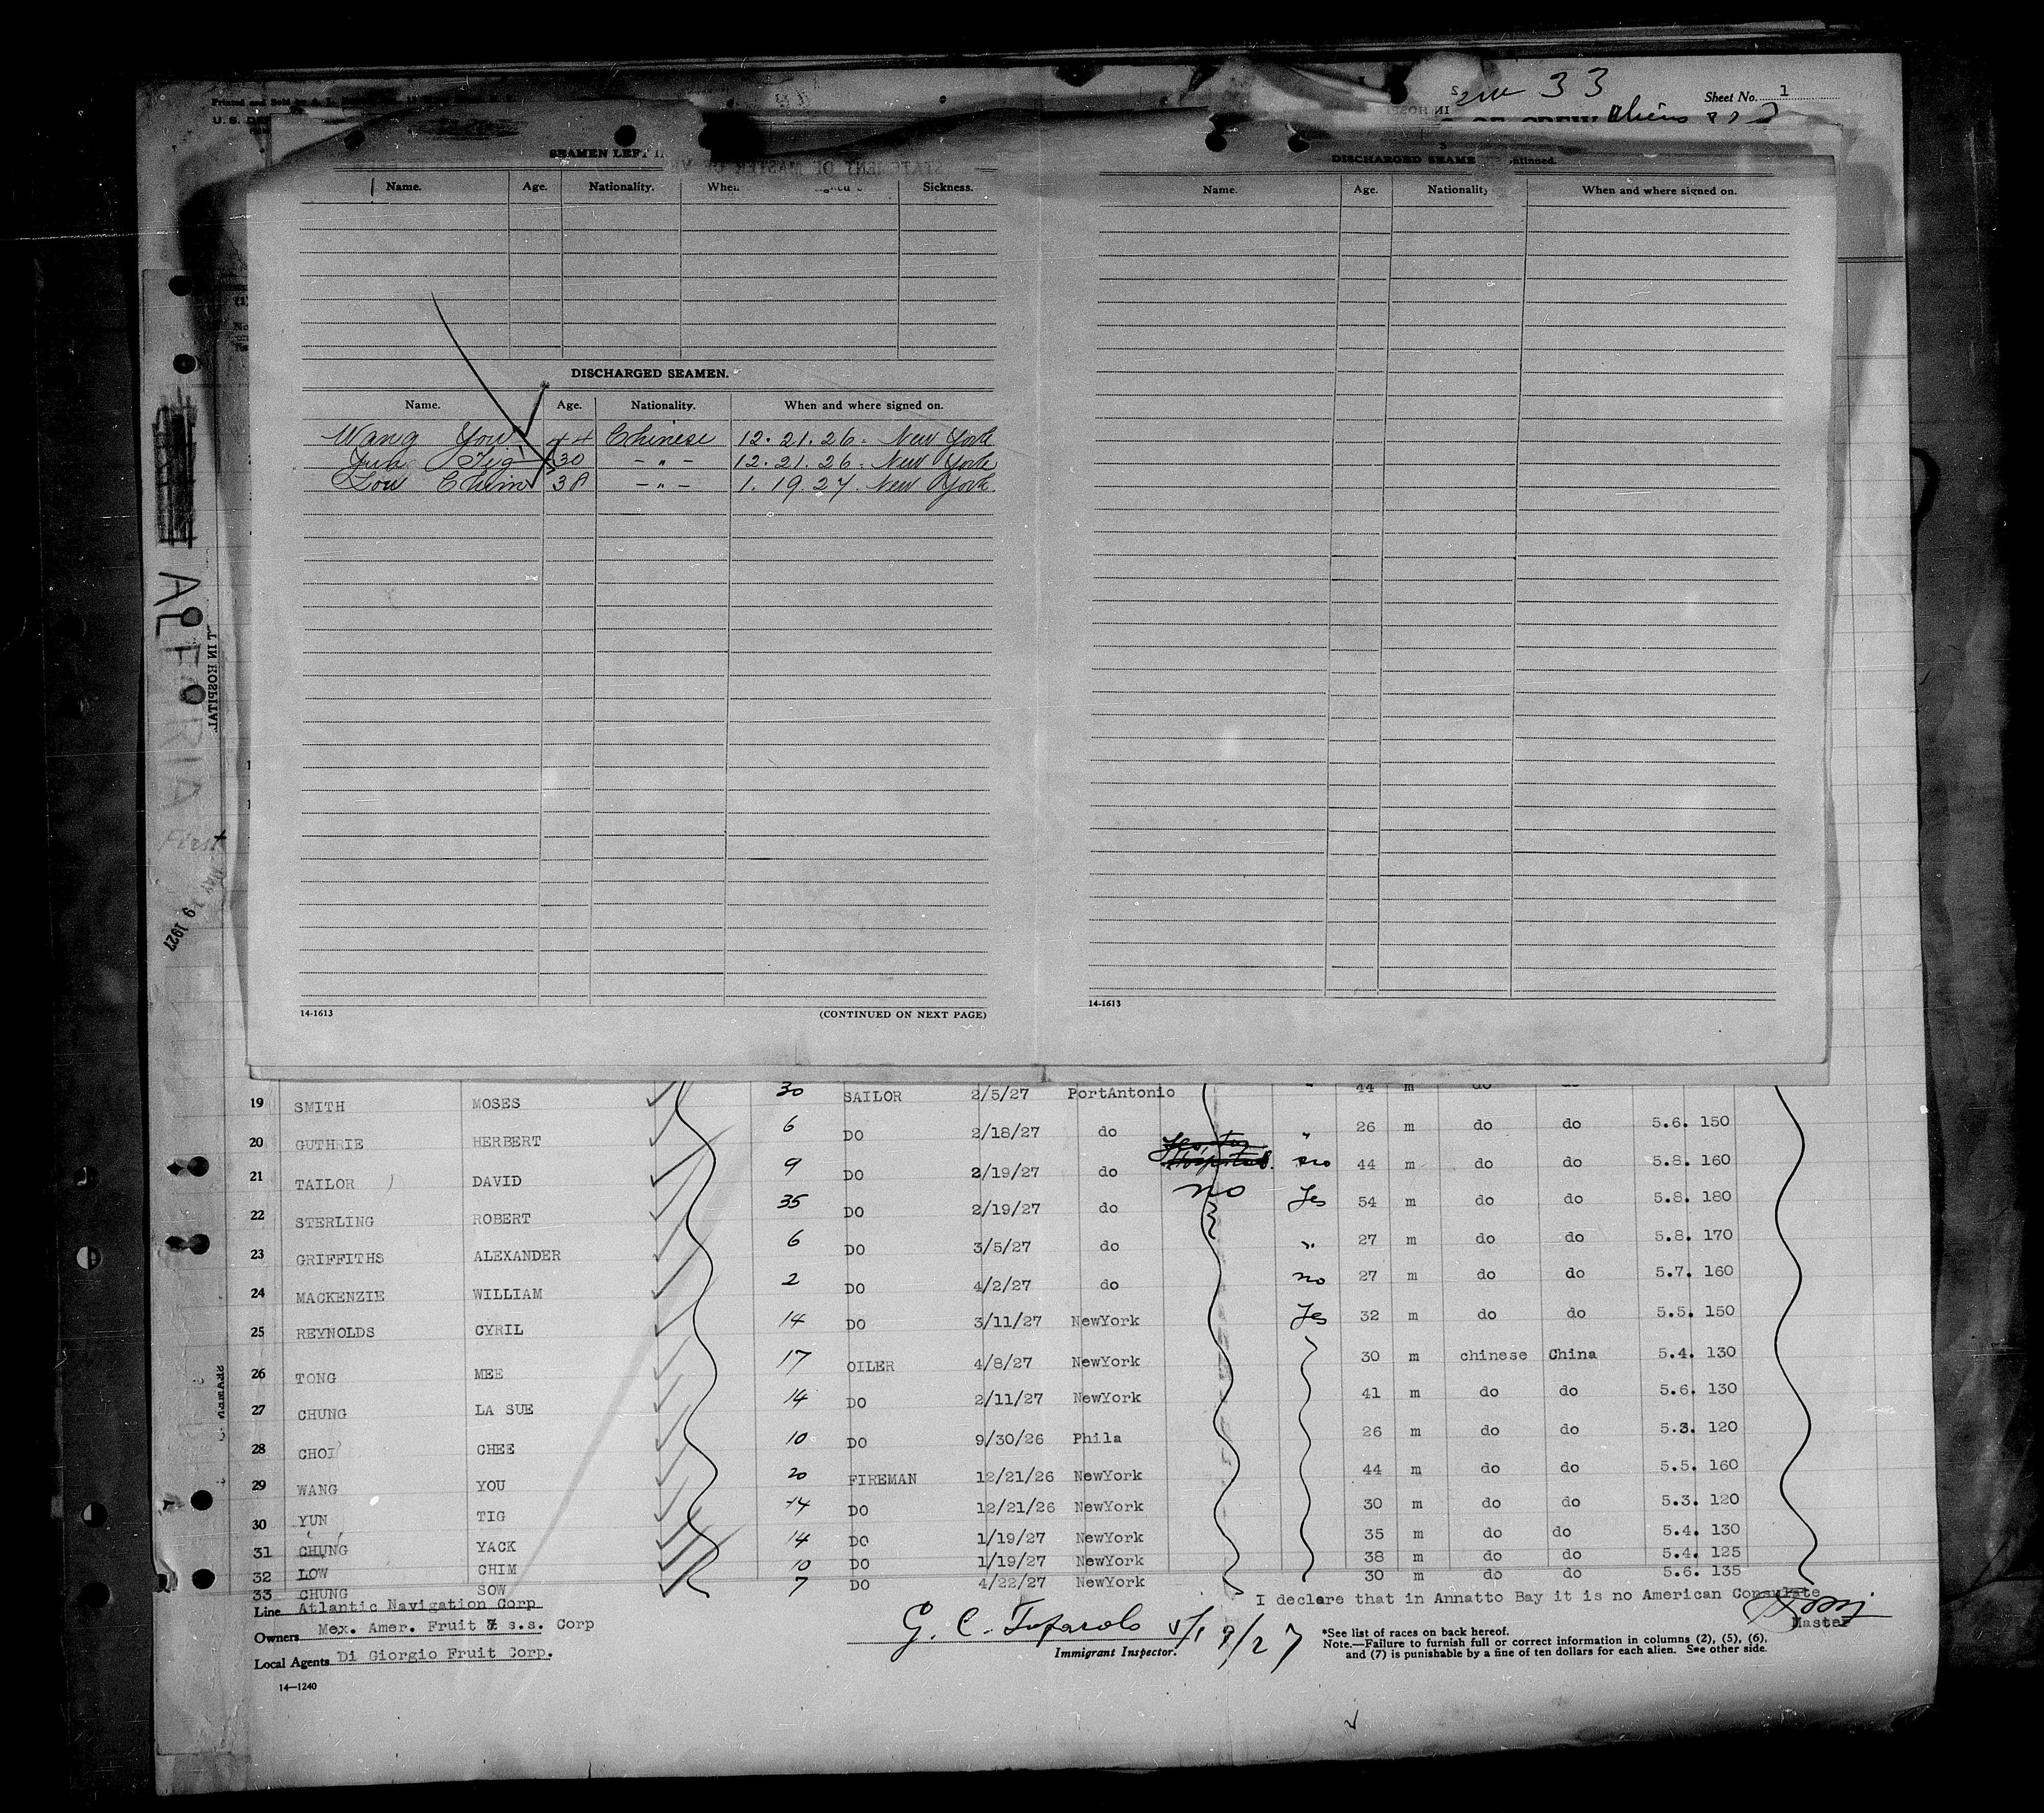 Printed and Sold by
33
Sheet No. 1
U. S. DE
SEAMEN LEFT I
Name. Age. Nationality. When Sickness.
DISCHARGED SEAMEN.
Name. Age. Nationality. When and where signed on.
Wang You 44 Chinese 12.21.26. New York
Yun Tig 30 - " - 12.21.26. New York
Low Chim 38 - " - 1.19.27. New York
14-1613 (CONTINUED ON NEXT PAGE)
DISCHARGED SEAME ntinued.
Name. Age. Nationality When and where signed on.
14-1613
ALMERIA
First
9 1927
T IN HOSPITAL.
19 SMITH MOSES 30 SAILOR 2/5/27 PortAntonio " 44 m do do
20 GUTHRIE HERBERT 6 DO 2/18/27 do " 26 m do do 5.6. 150
21 TAILOR DAVID 9 DO 2/19/27 do no 44 m do do 5.8. 160
22 STERLING ROBERT 35 DO 2/19/27 do no Yes 54 m do do 5.8. 180
23 GRIFFITHS ALEXANDER 6 DO 3/5/27 do " 27 m do do 5.8. 170
24 MACKENZIE WILLIAM 2 DO 4/2/27 do no 27 m do do 5.7. 160
25 REYNOLDS CYRIL 14 DO 3/11/27 NewYork Yes 32 m do do 5.5. 150
26 TONG MEE 17 OILER 4/8/27 NewYork 30 m chinese China 5.4. 130
27 CHUNG LA SUE 14 DO 2/11/27 NewYork 41 m do do 5.6. 130
28 CHOI CHEE 10 DO 9/30/26 Phila 26 m do do 5.3. 120
29 WANG YOU 20 FIREMAN 12/21/26 NewYork 44 m do do 5.5. 160
30 YUN TIG 14 DO 12/21/26 NewYork 30 m do do 5.3. 120
31 CHUNG YACK 14 DO 1/19/27 NewYork 35 m do do 5.4. 130
32 LOW CHIM 10 DO 1/19/27 NewYork 38 m do do 5.4. 125
33 CHUNG SOW 7 DO 4/22/27 NewYork 30 m do do 5.6. 135
I declare that in Annatto Bay it is no American Consulate
Master
Line Atlantic Navigation Corp
Owners Mex. Amer. Fruit & s.s. Corp
Local Agents Di Giorgio Fruit Corp.
14—1240
G. C. 5/19/27
Immigrant Inspector.
*See list of races on back hereof.
Note.—Failure to furnish full or correct information in columns (2), (5), (6),
and (7) is punishable by a fine of ten dollars for each alien. See other side.